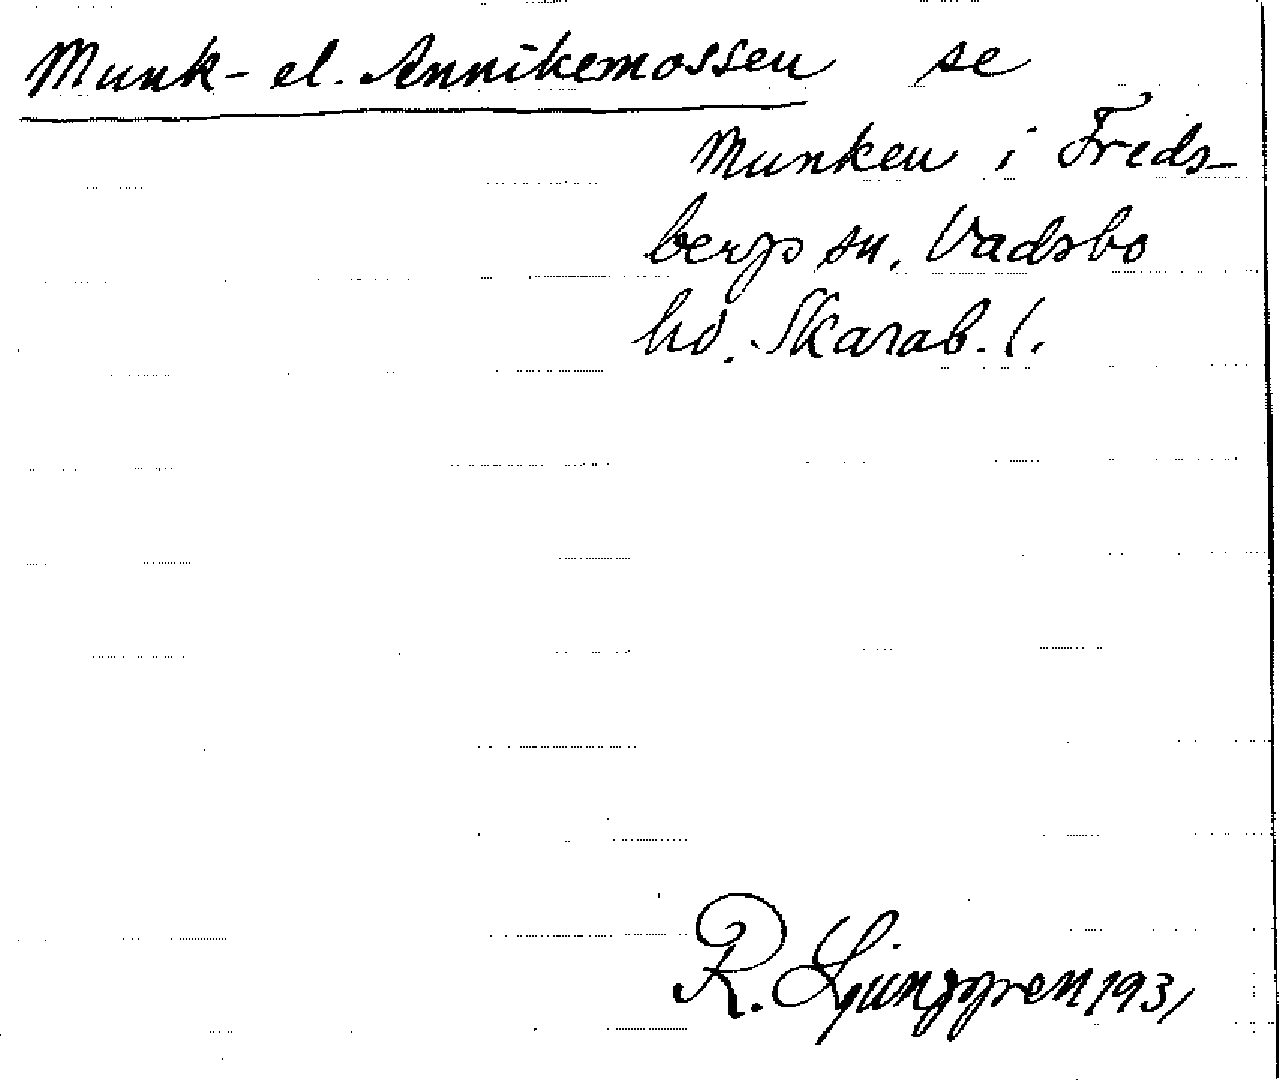 Munk- el. Annikemossen se
Munken i Freds-
bergs sn. Vadsbo
hd. Skarab. l.
R. Ljunggren 1931